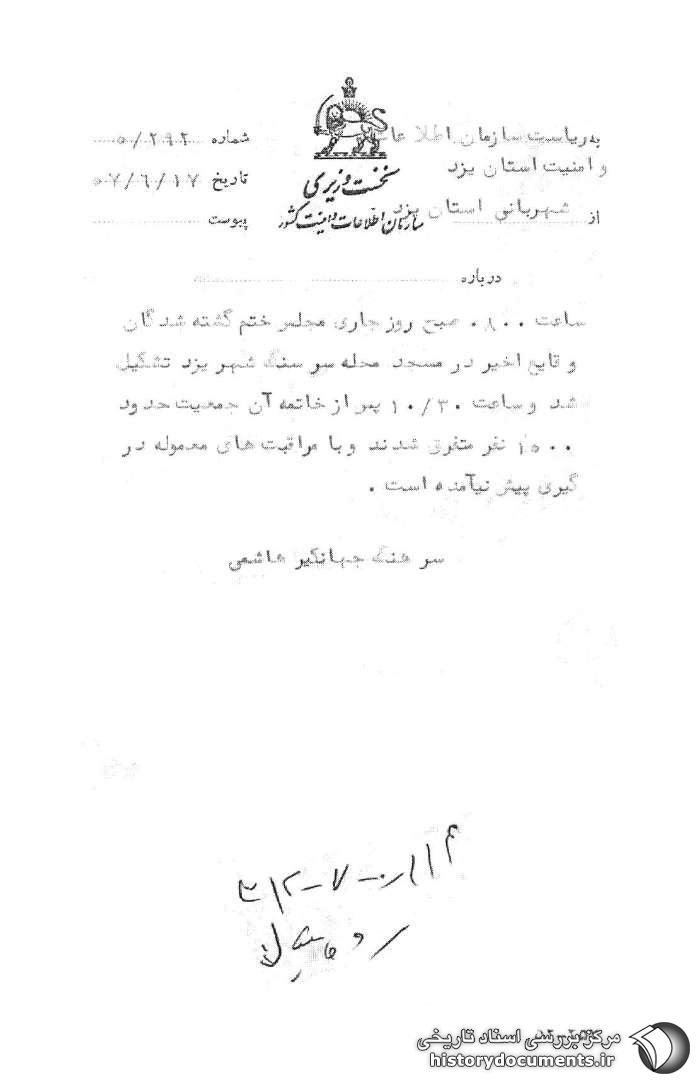 به ریاست سازمان اطلاعات
و امنیت استان یزد
از شهربانی استان یزد
نخست وزیری
سازمان اطلاعات و امنیت کشور
شماره ۵/۲۹۲
تاریخ ۵۷/۶/۱۷
پیوست
درباره
ساعت ۸۰۰ صبح روز جاری مجلس ختم گشته شدگان
وقایع اخیر در مسجد محله سر سنگ شهر یزد تشکیل
شد و ساعت ۱۰/۳۰ پس از خاتمه آن جمعیت حدود
۱۵۰۰ نفر متفرق شدند و با مراقبت های معموله در
گیری پیش نیآمده است .
سرهنگ جهانگیر هاشمی
مرکز بررسی اسناد تاریخی
historydocuments.ir